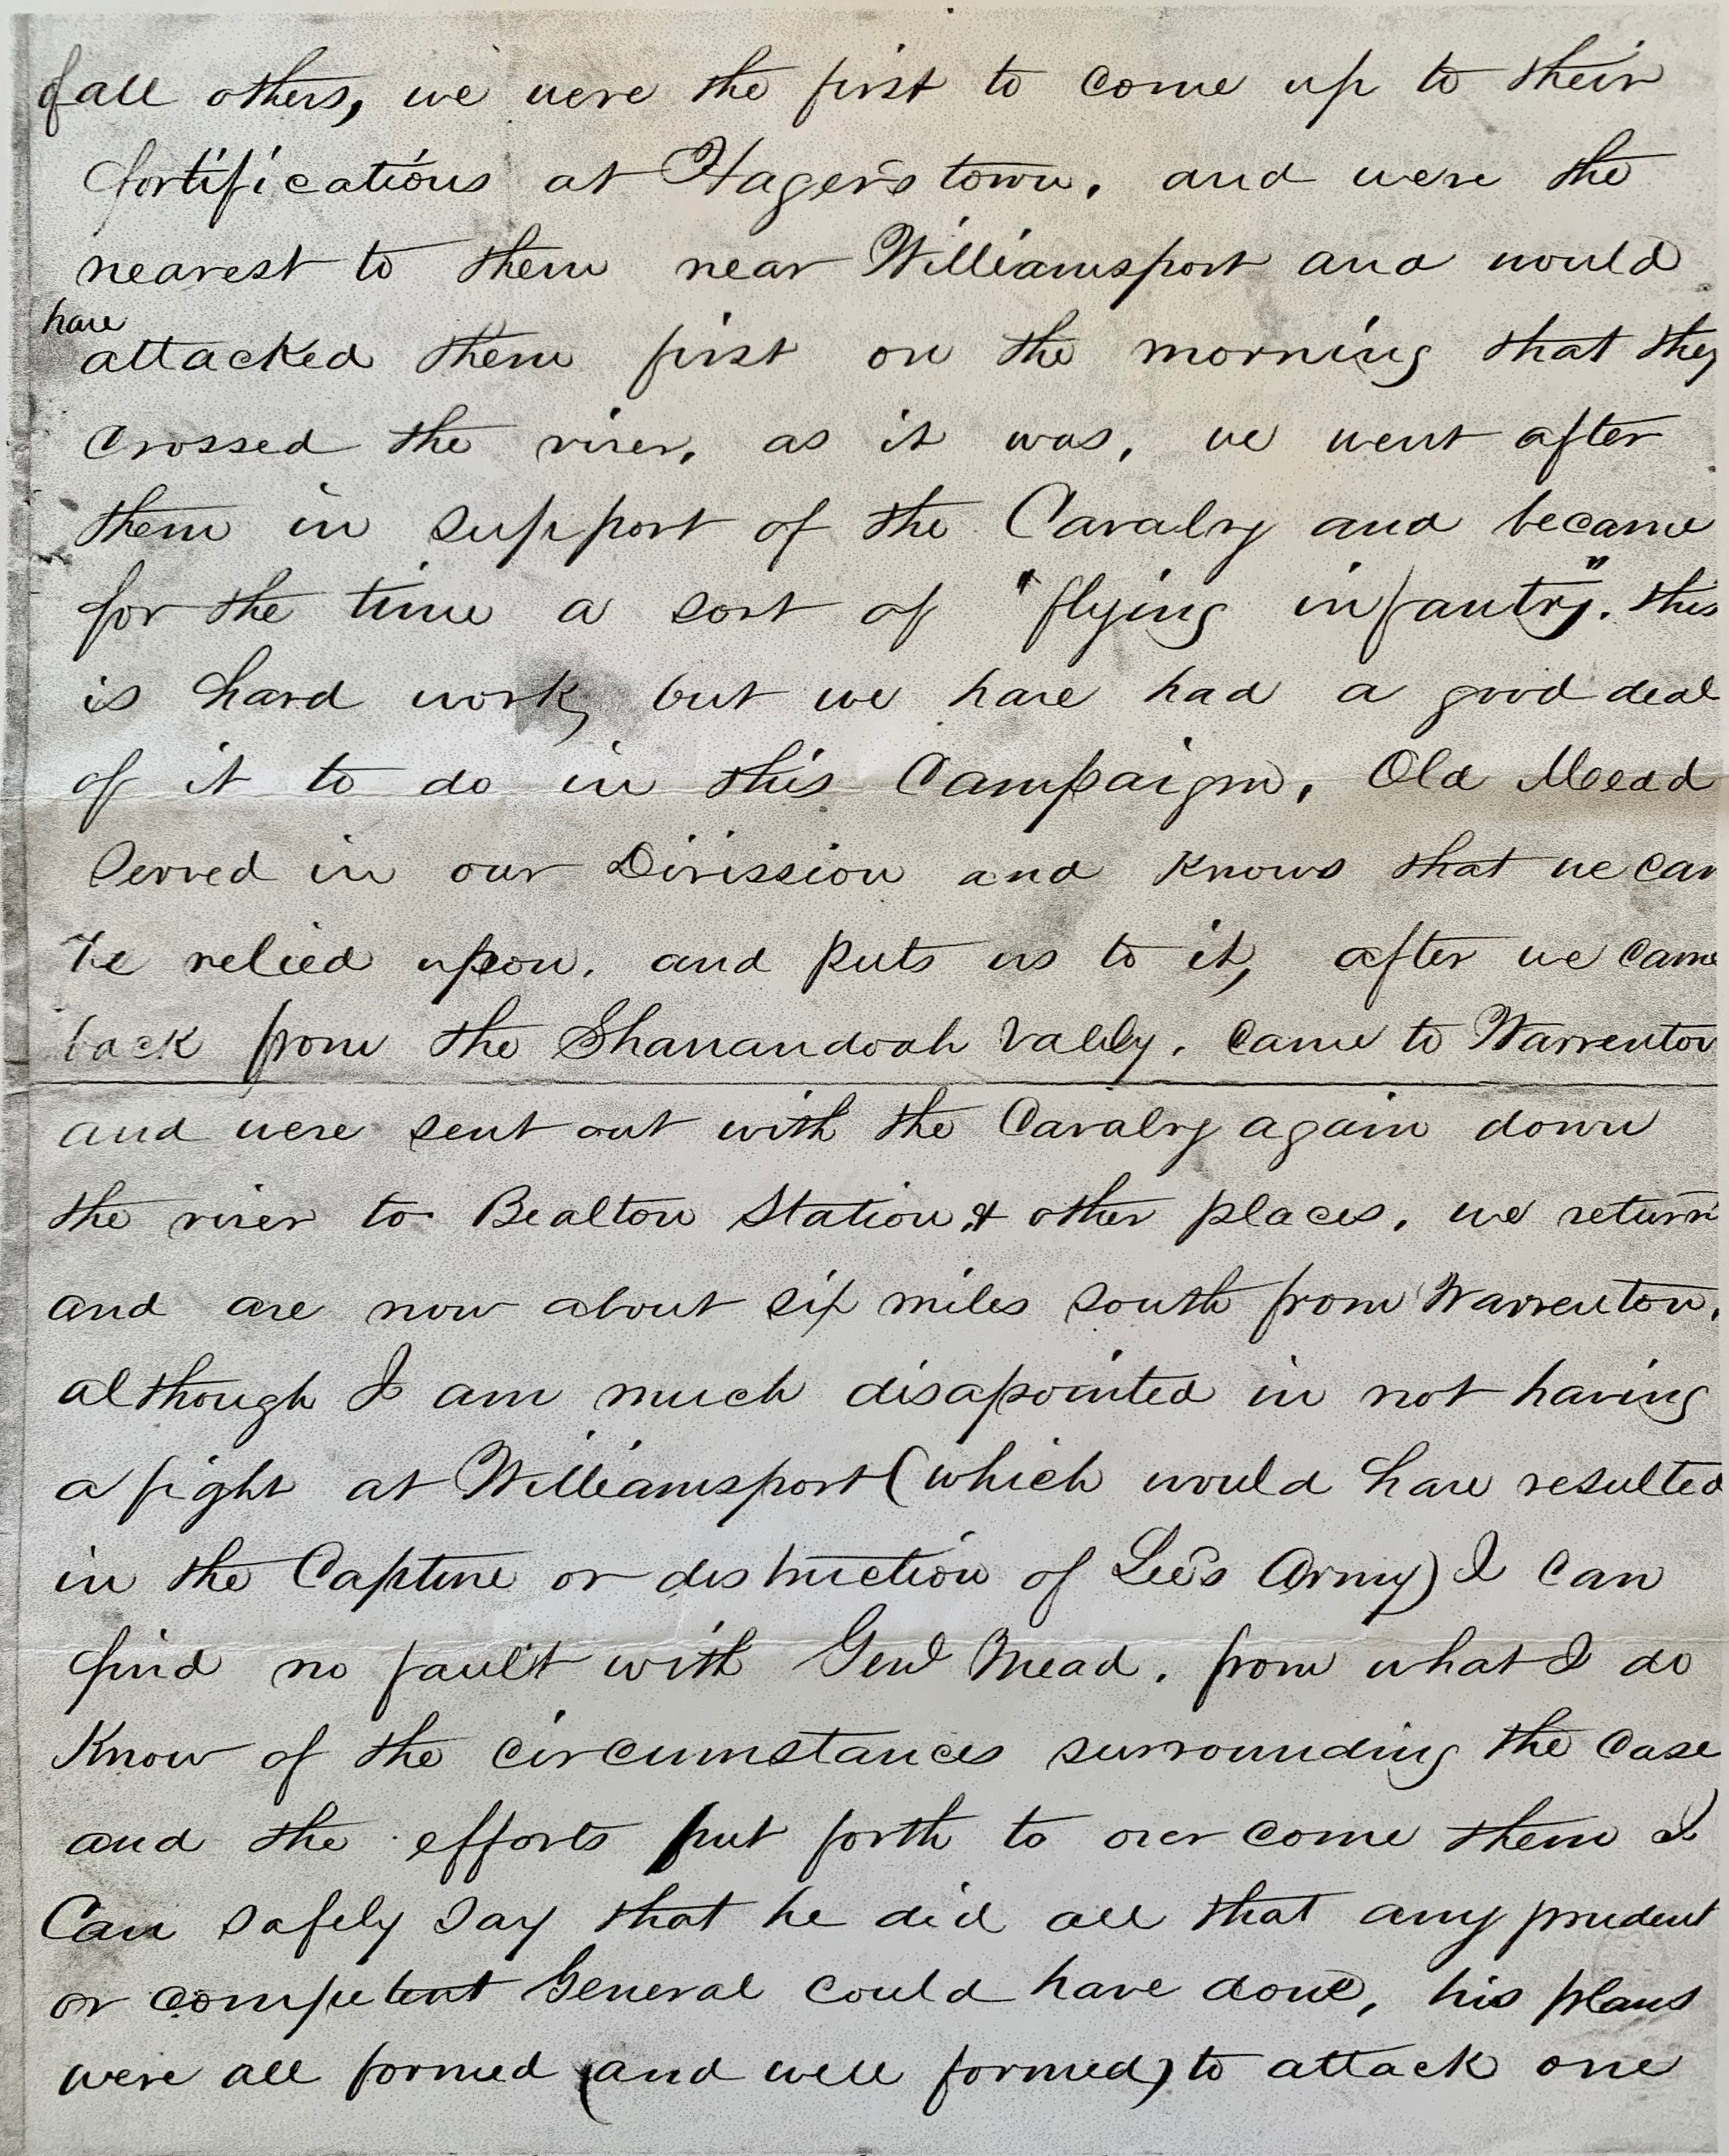 of all others, we were the first to come up to their
fortifications at Hagerstown. and were the
nearest to them near Williamsport and would
have
attacked them first on the morning that they
crossed the river, as it was, we went after
them in support of the Cavalry and became
for the time a sort of "flying infantry". this
is hard work, but we have had a good deal
of it to do in this Campaign, Old Mead
Served in our Division and knows that we can
be relied upon. and puts us to it, after we came
back from the Shanandoah Vallely. Came to Warrenton
and were sent out with the Cavalry again down
the river to Bealton Station & other places, we return
and are now about six miles south from Warrenton.
although I am much disapointed in not having
a fight at Williamsport (which would have resulted
in the Capture or distruction of Lee's Army) I can
find no fault with Genl Mead. from what I do
Know of the circumstances surrounding the case
and the efforts put forth to over come them I
Can safely say that he did all that any prudent
or competent General could have done, his plans
were all formed (and well formed) to attack one